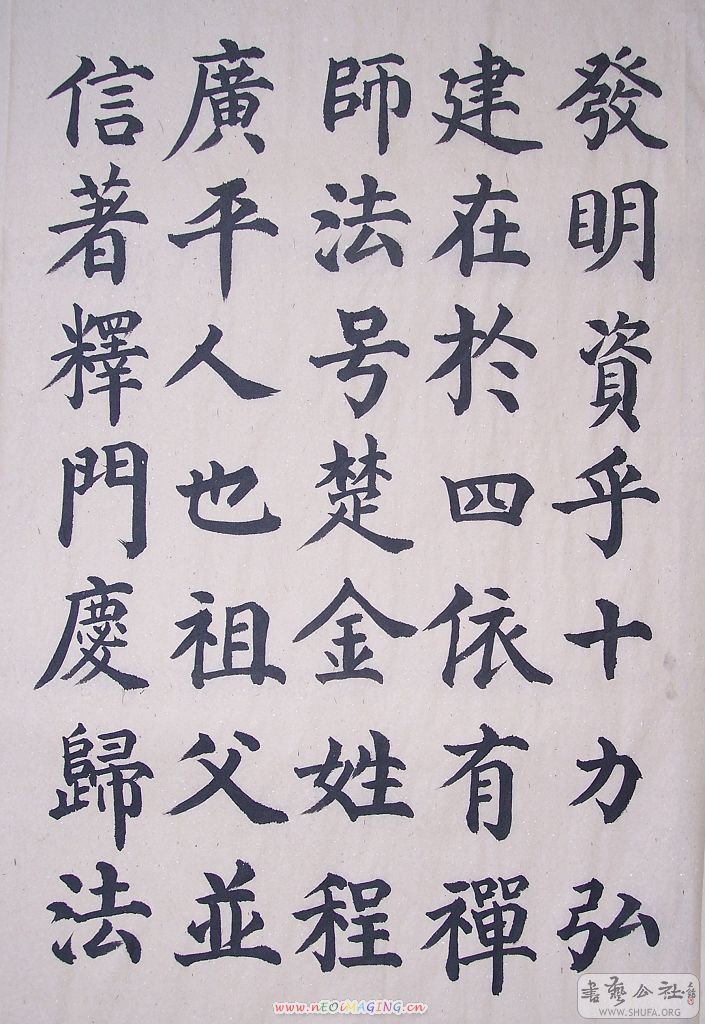 發明資乎十力弘
建在於四依有禪
師法号楚金姓程
廣平人也祖父並
信著釋門慶歸法
www.nEOiMAGING.cn
書藝公社
WWW.SHUFA.ORG